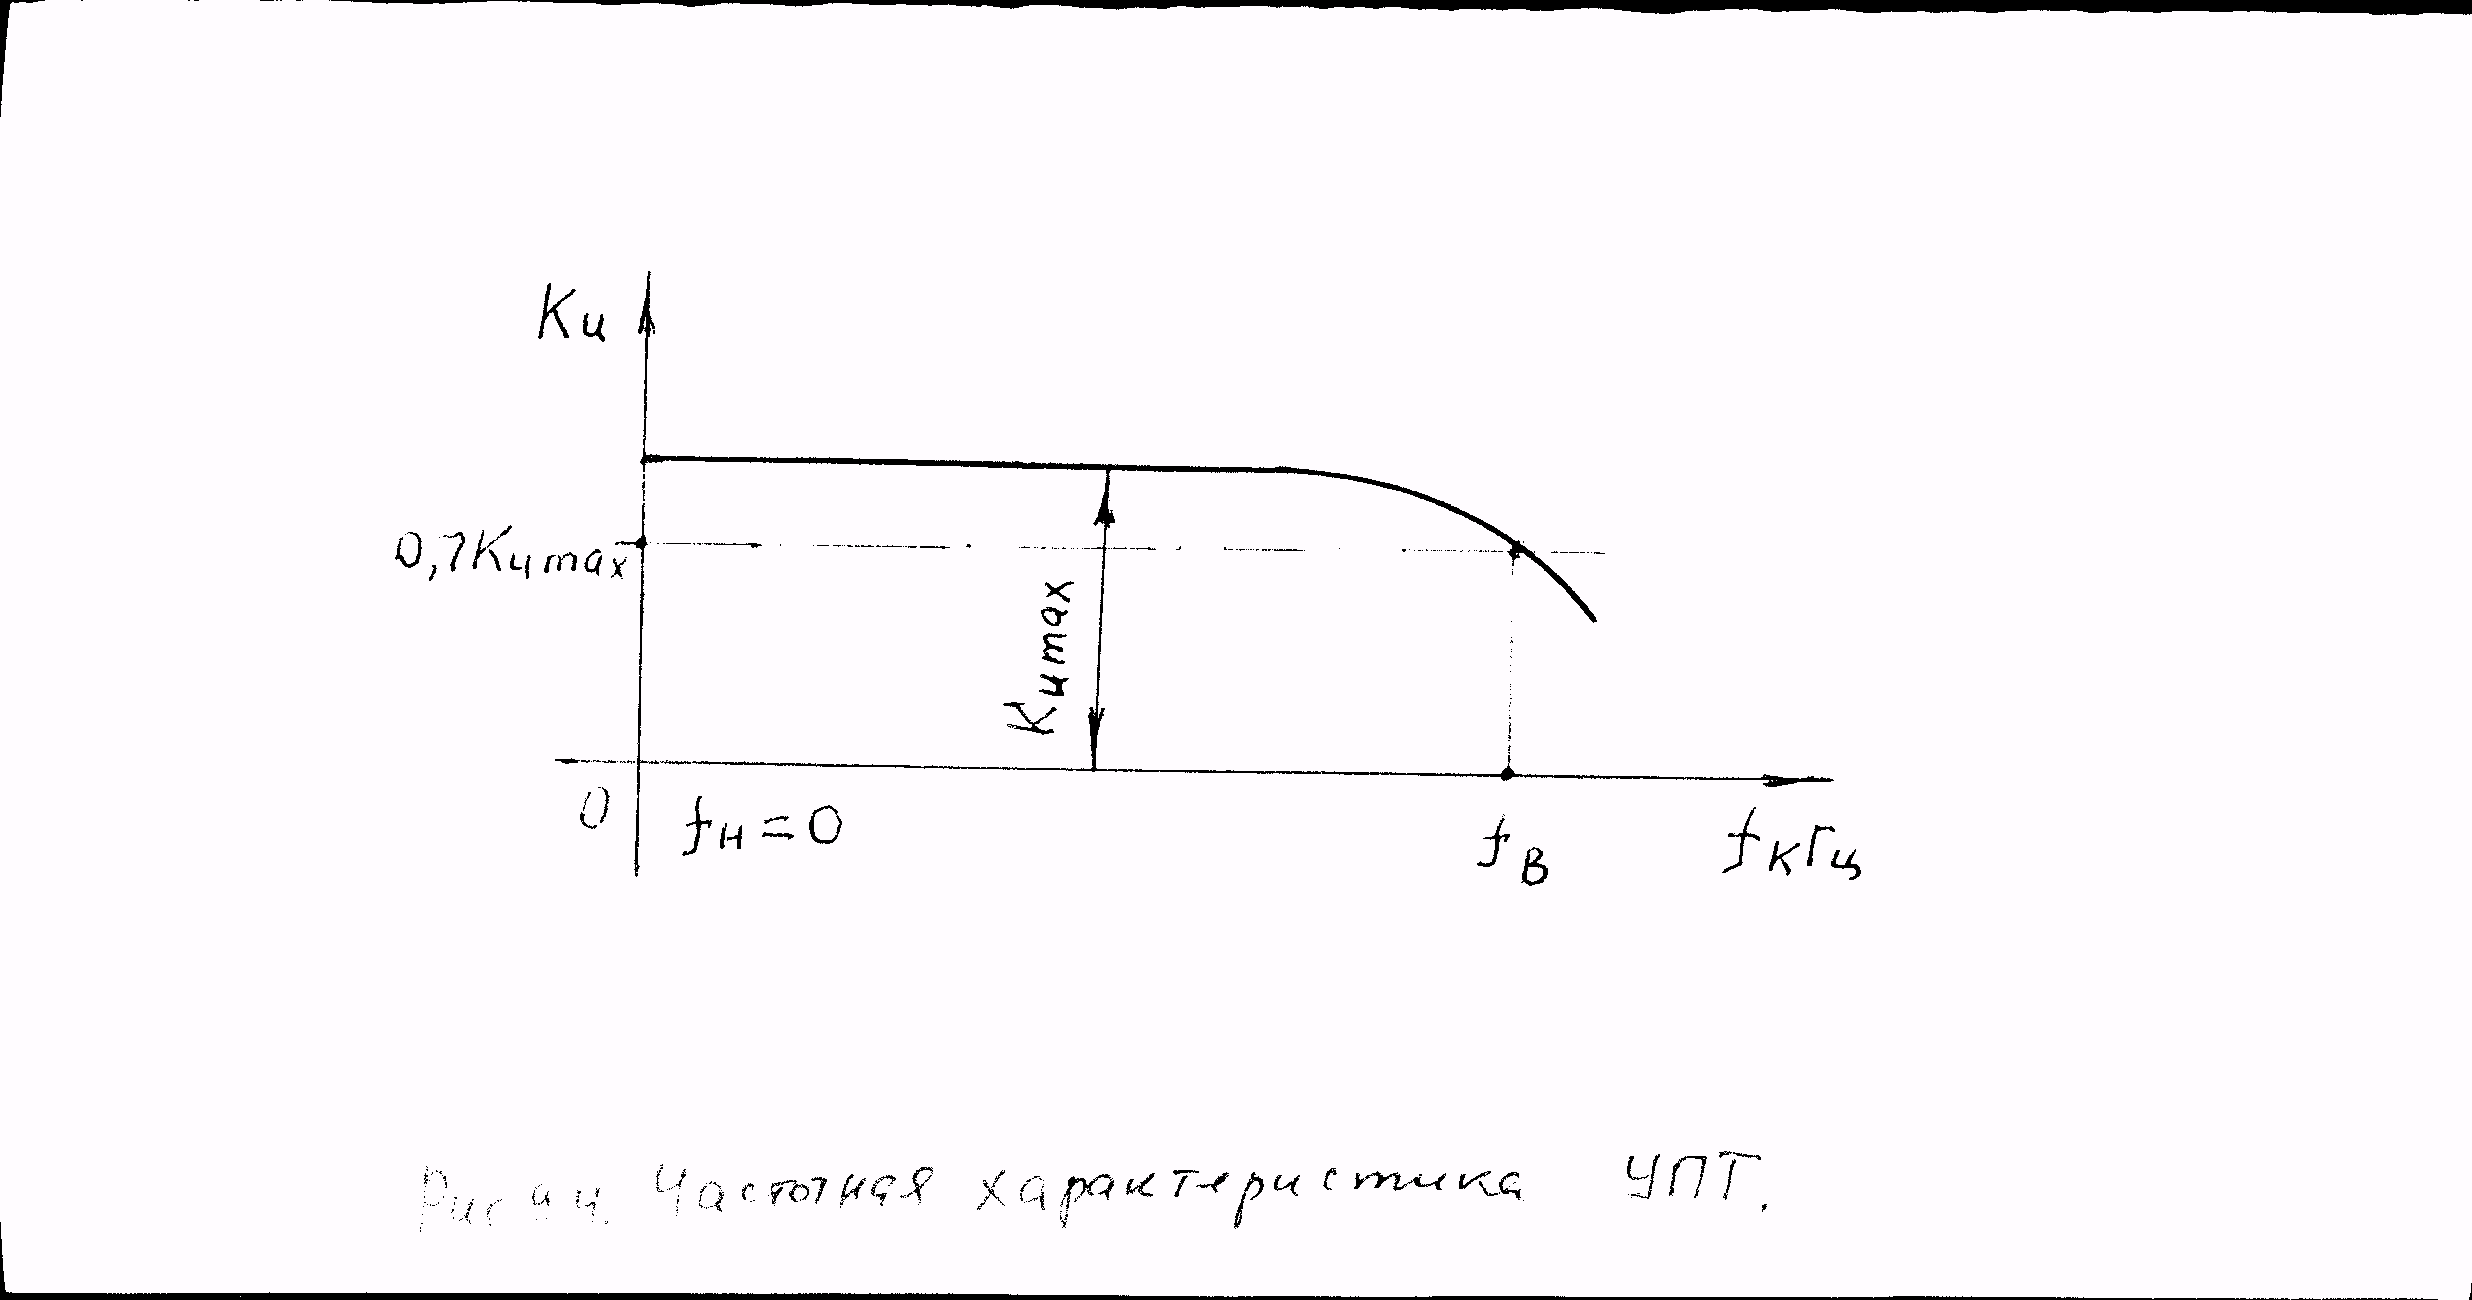 Ku
0,7Kumax
Kumax
0
fн=0
fв
fкГц
Рис Частотная характеристика УПТ.